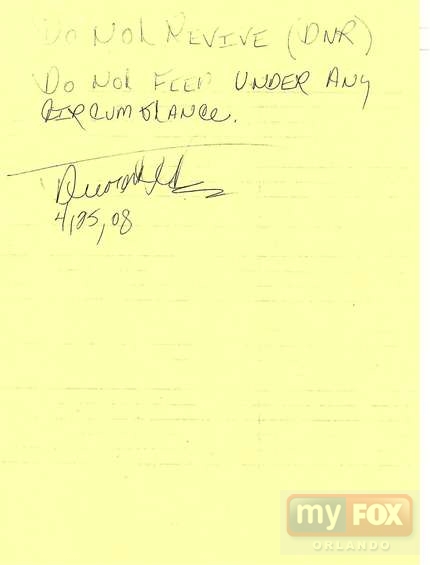 Do Not Revive (DNR)
Do Not Feed UNDER ANy
CIRCUMSTANCE.
4,25,08
my FOX
ORLANDO